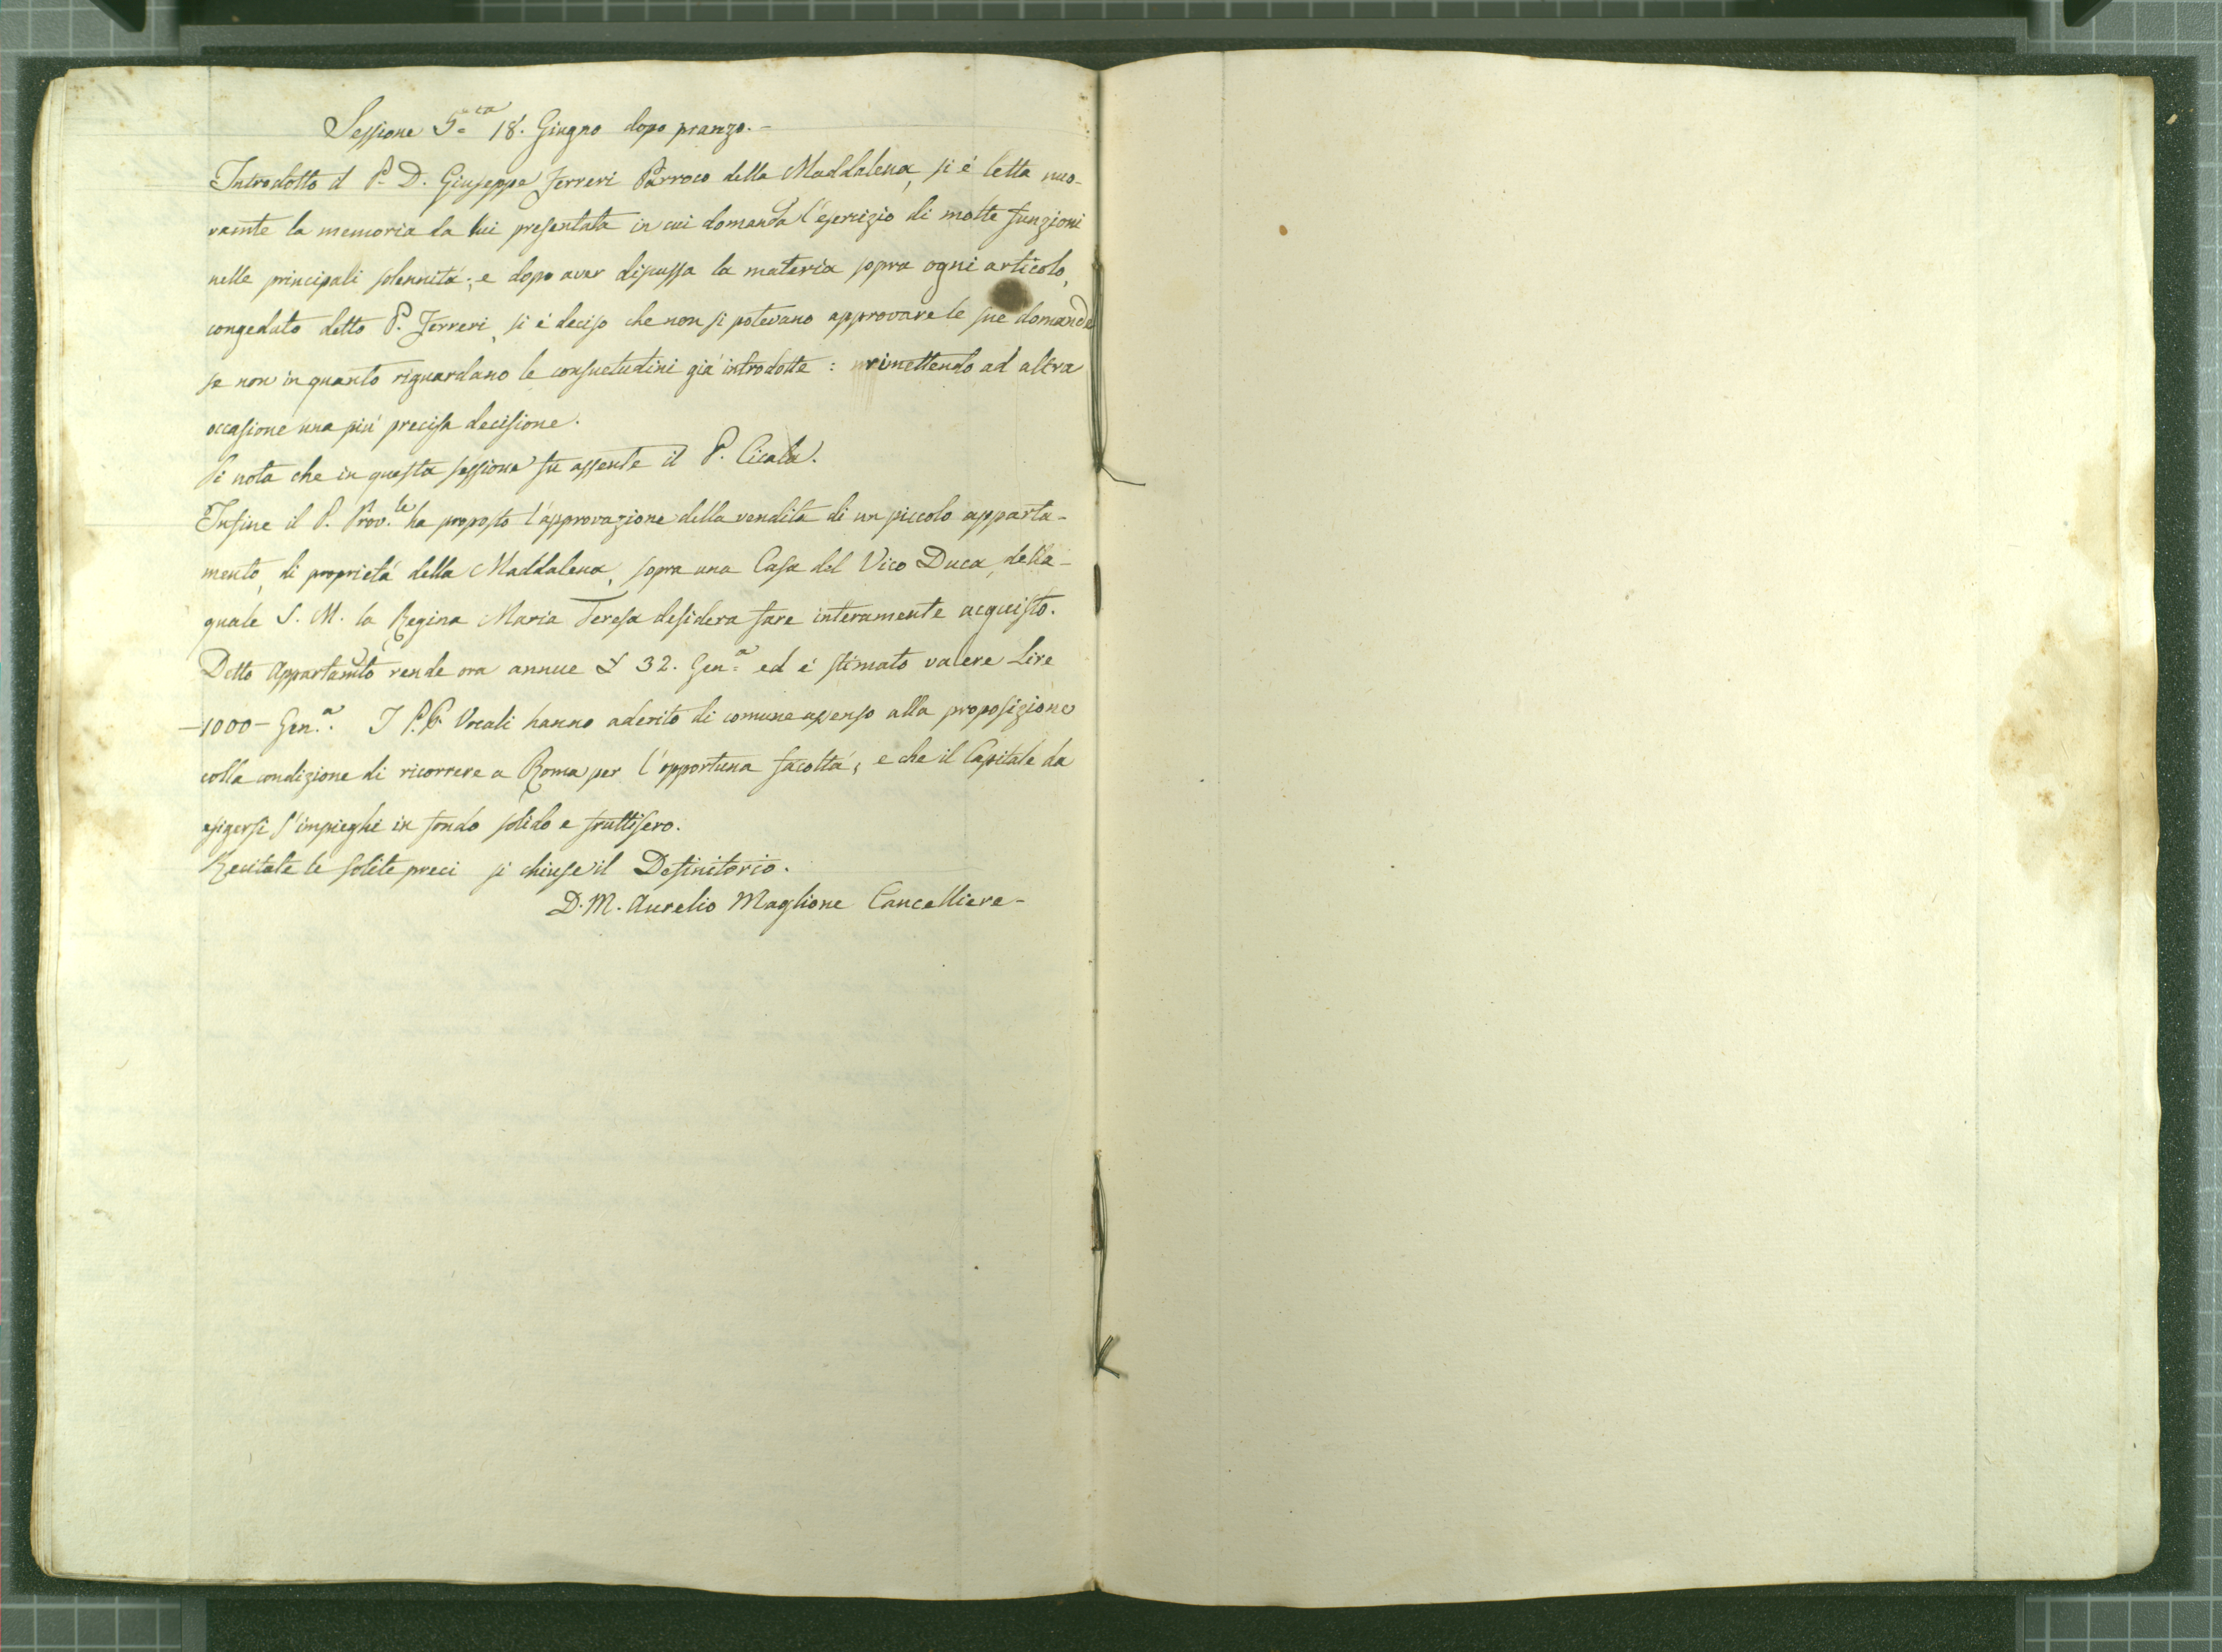 Sessione 5.ta 18. Giugno dopo pranzo. -
Introdotto il P. D. Giuseppe Ferreri Parroco della Maddalena, si é letta nuo-
vamte la memoria da lui presentata in cui domanda l'esercizio di molte funzioni
nelle principali solennitá; e dopo aver discussa la materia sopra ogni articolo,
congedato detto P. Ferreri, si é deciso che non si potevano approvare le sue domande
se non in quanto riguardano le consuetudini giá introdotte: rimettendo ad altra
occasione una piú precisa decisione.
Si nota che in questa sessione fu assente il P. Cicala.
Infine il P. Prov.le ha proposto l'approvazione della vendita di un piccolo apparta-
mento, di proprietá della Maddalena, sopra una Casa del Vico Duca, della-
quale S. M. la Regina Maria Teresa desidera fare interamente acquisto.
Detto Appartamto rende ora annue £ 32. Gen.a ed é stimato valere Lire
-1000- Gen.a. I P.P. Vocali hanno aderito di comune assenso alla proposizione
colla condizione di ricorrere a Roma per l'opportuna facoltá, e che il Capitale da
esigersi s'impieghi in fondo solido e fruttifero.
Recitate le solite preci si chiuse il Definitorio.
D. M. Aurelio Maglione Cancelliere -